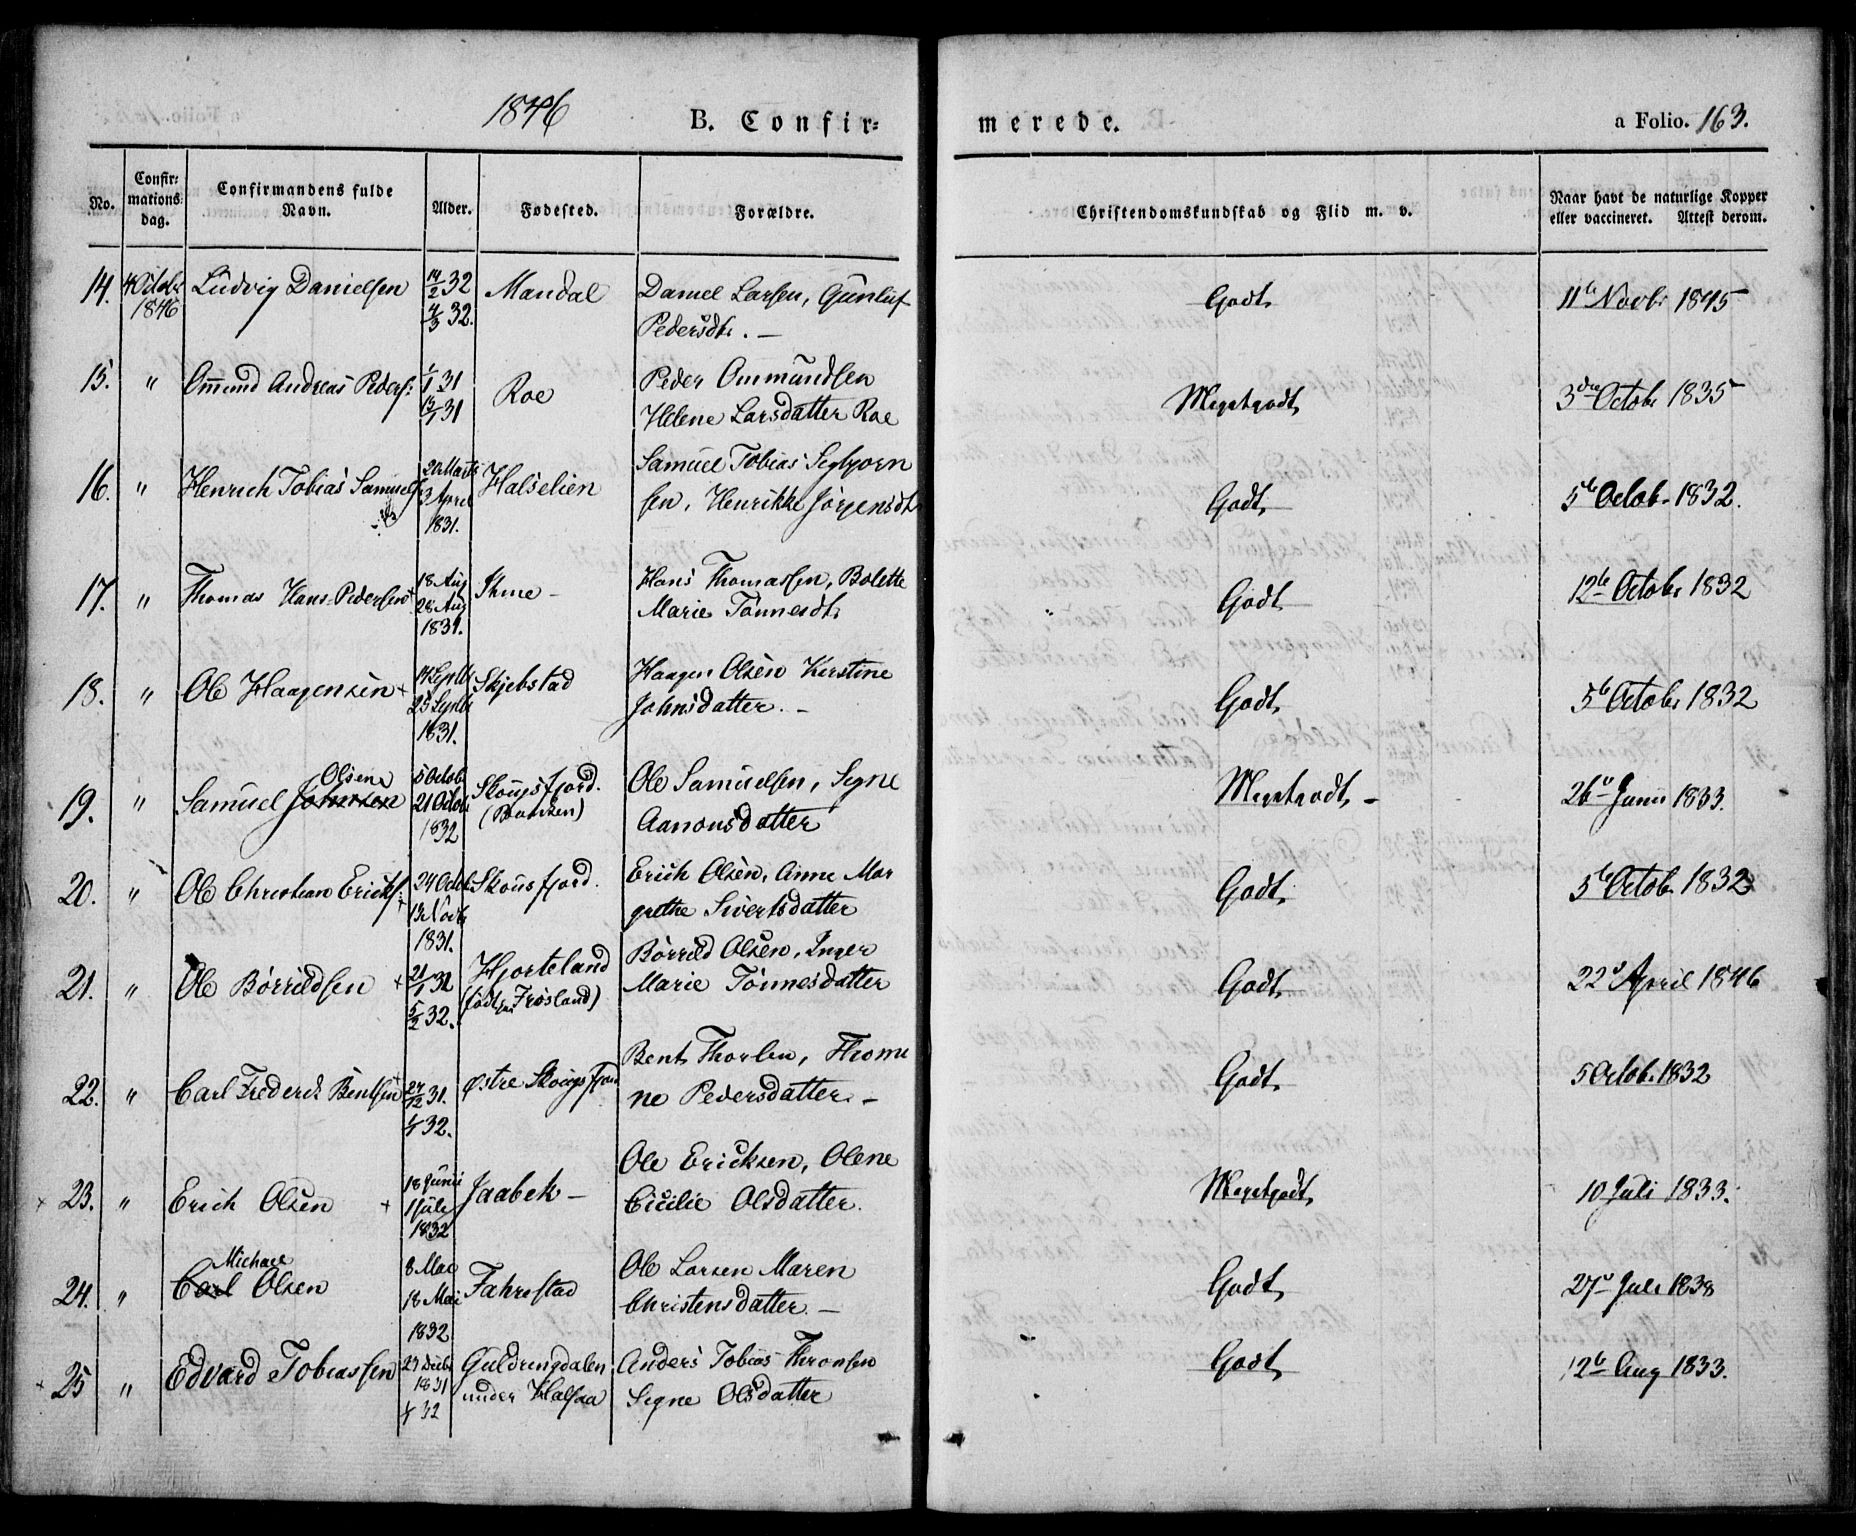 1846 B. Confir= merede. a Folio. 163.
No. Confir= mations= dag. Confirmandens fulde Navn. Alder. Fødested. Forældre. Christendomskundskab og Flid m. v. Naar havt de naturlige Kopper eller vaccineret. Attest derom.
14. 4 Octobr 1846 Ludvig Danielsen 14/2 32 4/3 32. Mandal Daniel Larsen, Gunluf Pedersdtr. — Godt 11te Novbr 1845
15. " Omund Andreas Peders: 1/1 31 31 Roe Peder Ommundsen Helene Larsdatter Roe Megetgodt 3die Octobr 1835
16. " Henrich Tobias Samuels 20 Marts 3 April 1831. Halselien Samuel Tobias Segbjørn sen, Henrikke Jørgensdtr Godt 5te Octob. 1832.
17. " Thomas Hans-Pedersen + 18 Aug 28 Aug 1831. Ihme — Hans Thomassen, Bolette Marie Tønnesdtr Godt 12te Octobr 1832
18. " Ole Haagensen + 14 Septbr 25 Septbr 1831. Skjebstad Haagen Olsen Kirstine Johnsdatter. — Godt 5te Octobr 1832
19. " Samuel Johnsen Olsen 5 Octob 21 Octob 1832 Skougsfjord. Ole Samuelsen, Segne Aanonsdatter Megetgodt — 26de Junii 1833.
20. " Ole Christian Erichs: 24 Octob 13 Novb 1831. Skousfjord. Erich Olsen, Anne Mar grethe Sivertsdatter Godt 5te Octob. 1832
21. " Ole Børrildsen + 21/1 32 5/2 32. Hjorteland (født paa Frøsland) Børrild Olsen, Inger Marie Tønnesdatter Godt 22de April 1846
22. " Carl Frederik Bentsen 27/12 31. 32. Østre Skougsfjord Bent Thorsen, Thomi ne Pedersdatter. — Godt 5 Octob. 1832
× 23. " Erich Olsen + 18 Junii 1 Juli 1832 Jaabek — Ole Ericksen, Olene Cicilie Olsdatter. Megetgodt 10 Juli 1833.
24. " Carl Michael Olsen 8 Mai 18 Mai 1832 Fahrestad Ole Larsen Maren Christensdatter. — Godt 27de Juli 1838
× 25 " Edvard Tobiassen 29 Decbr 1831 32 Guldringdalen under Halsaa Anders Tobias Thronsen Segne Olsdatter Godt 12te Aug 1833.